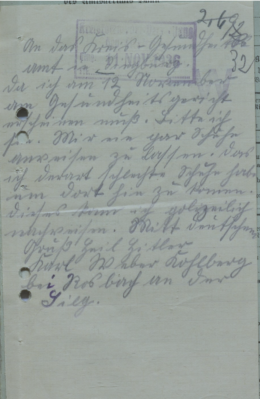 An das Kreis-Gesundheits
amt
da ich am 12 November
am Gesundheitsgericht
erscheinen muß. Bitte ich
Sie. Mir ein par Schuhe
anweisen zu lassen. das
ich derart schlechte Schuhe hab
um dort hin zu kommen.
dieses kann ich polizeilich
nachweisen. Mitt deutschen
Gruß Heil Hitler
Karl Weber Kohlberg
bei Rosbach an der
Sieg.